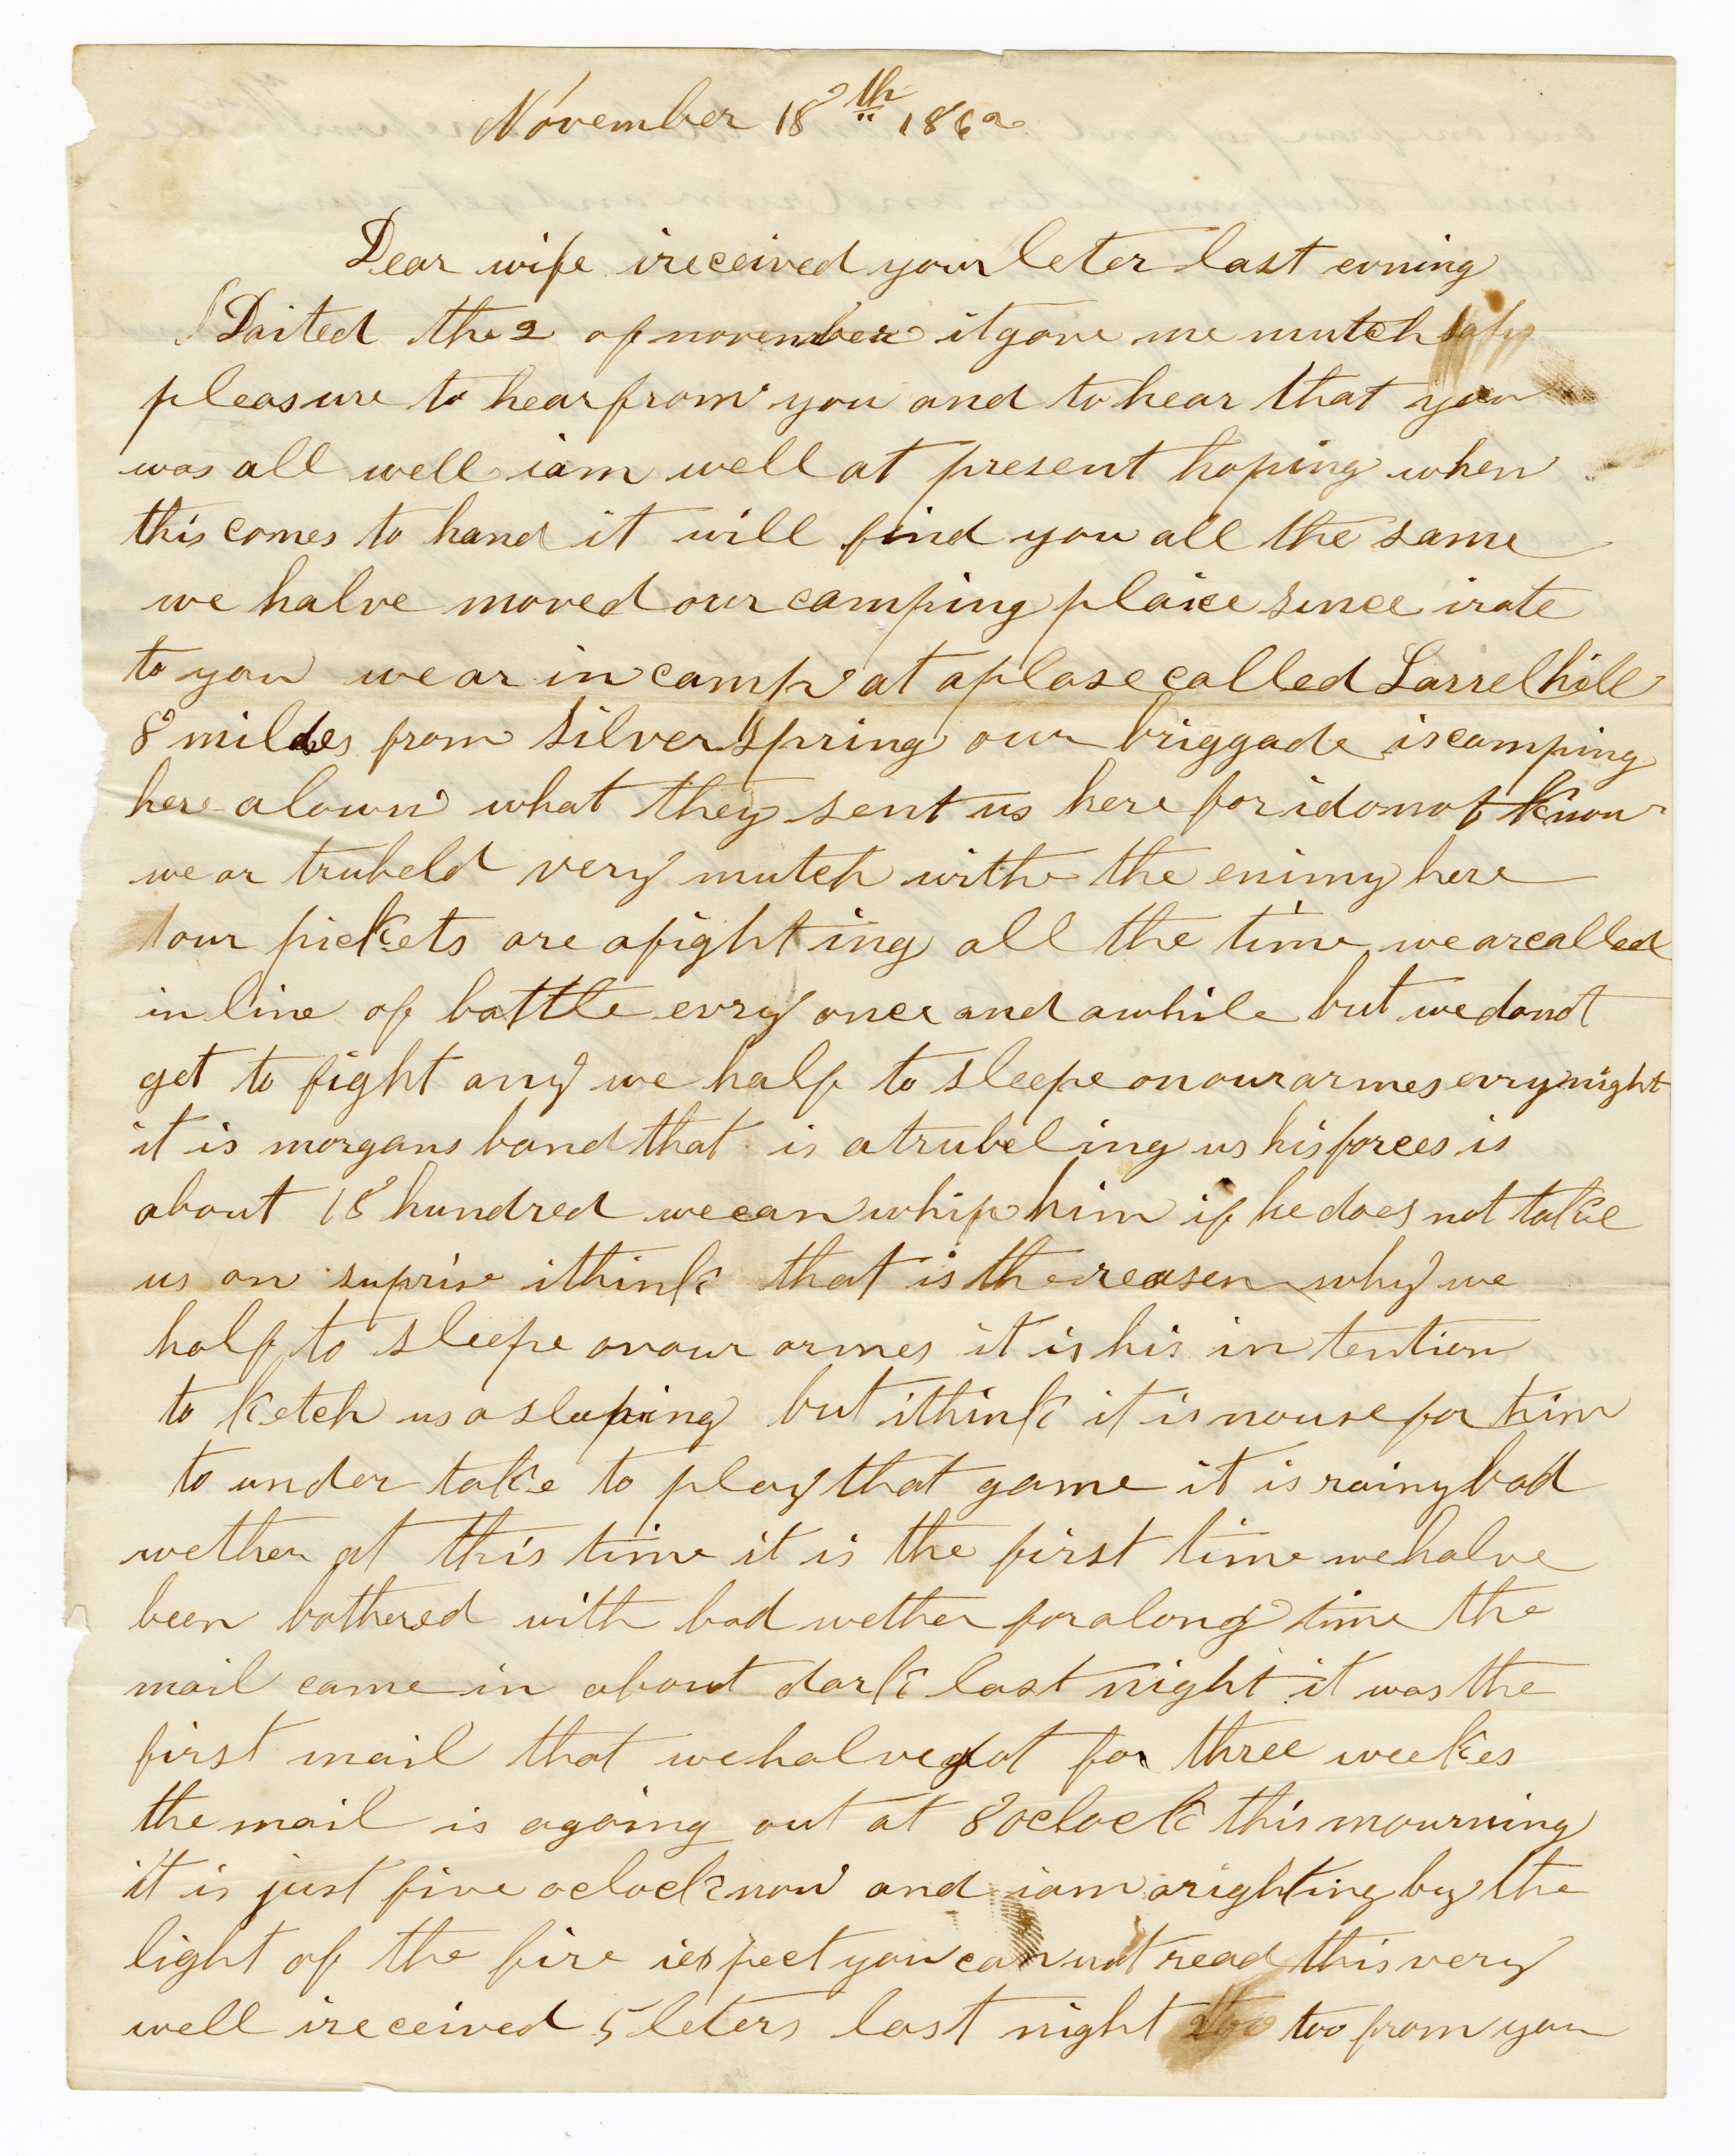 November 18th 1862
Dear wife ireceived your leter last evning
Daited the 2 of november it gave me mutch
pleasure to hear from you and to hear that you
was all well iam well at present hoping when
this comes to hand it will find you all the same
we halve moved our camping plaice since irote
to you we ar in camp at aplase called Larrelhill
8 miles from silver spring our briggade is camping
here alown what they sent us here for idonot know
we ar trubeld very mutch withe the enimy here
our pickets are afighting all the time we arcalled
in line of battle evry once and awhile but wedonot
get to fight any we half to sleepe onourarmes evrynight
it is morgans band that is atrubeling us his forces is
about 18 hundred wecan whip him if he does not take
us on suprise ithink that is the reasen why we
half to sleepe onour armes it is his intention
to ketch us asleeping but ithink it is nouse for him
to under take to play that game it is rainy bad
wether at this time it is the first time wehalve
been bothered with bad wether foralong time the
mail came in about dark last night it was the
first mail that wehalve got for three weekes
the mail is agoing out at 8 oclock this mourning
it is just five oclock now and iam arighting by the
light of the fire iexpect you can not read this very
well ireceived 5 leters last night too from you